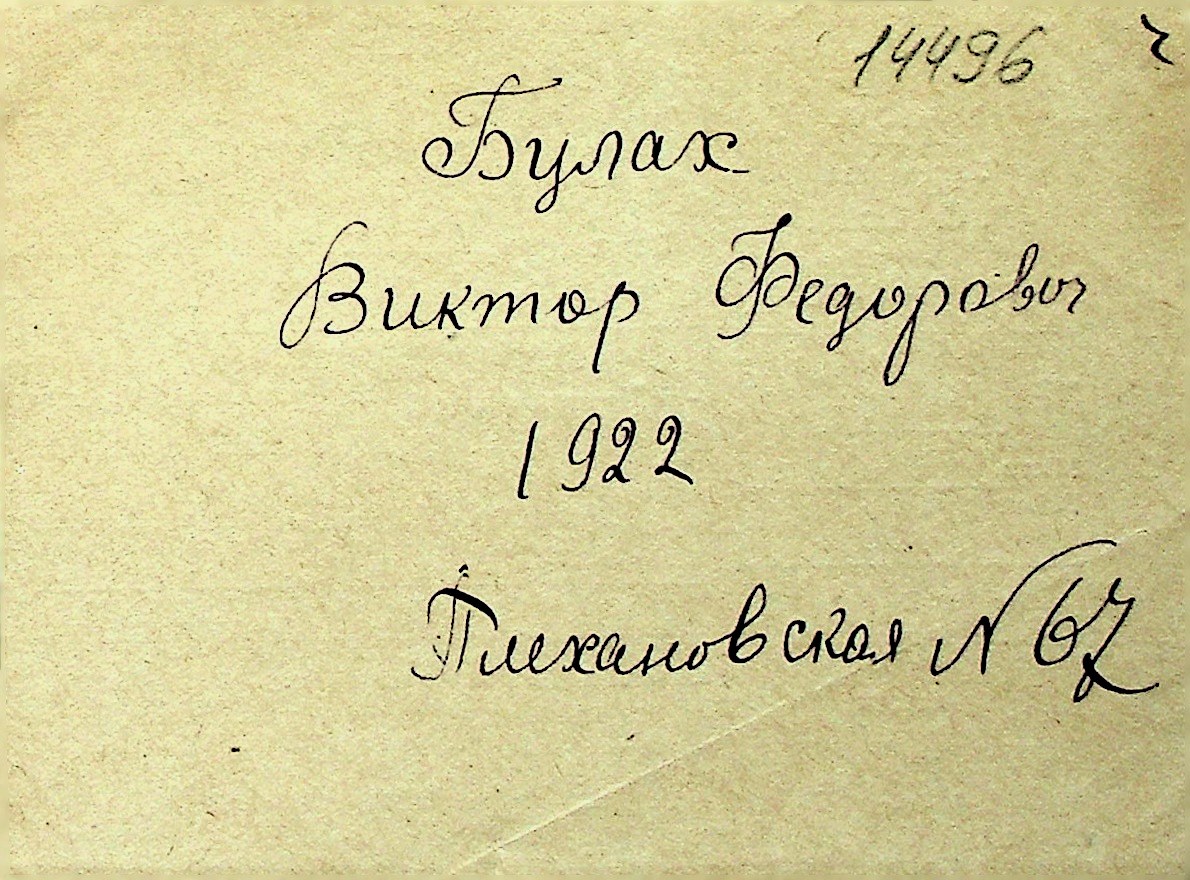 14496
Булах
Виктор Федорович
1922
Плехановская N 67